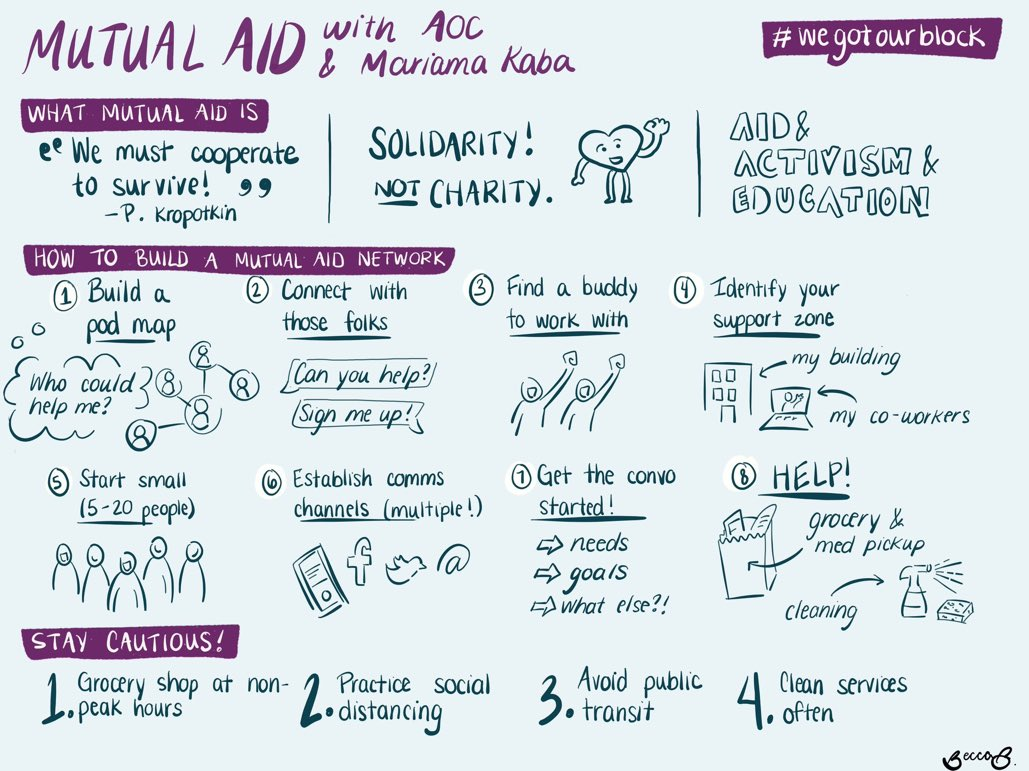 MUTUAL AID with AOC
& Mariama Kaba
#wegotourblock
WHAT MUTUAL AID IS
"We must cooperate
to survive!"
- P. Kropotkin
SOLIDARITY!
NOT CHARITY.
AID &
ACTIVISM &
EDUCATION
HOW TO BUILD A MUTUAL AID NETWORK
1 Build a
pod map
Who could
help me?
2 Connect with
those folks
Can you help?
Sign me up!
3 Find a buddy
to work with
4 Identify your
support zone
my building
my co-workers
5 Start small
(5-20 people)
6 Establish comms
channels (multiple!)
f
@
7 Get the convo
started!
⇨ needs
⇨ goals
⇨ what else?!
8 HELP!
grocery &
med pickup
cleaning
STAY CAUTIOUS!
1. Grocery shop at non-
peak hours
2. Practice social
distancing
3. Avoid public
transit
4. Clean services
often
BeccaB.